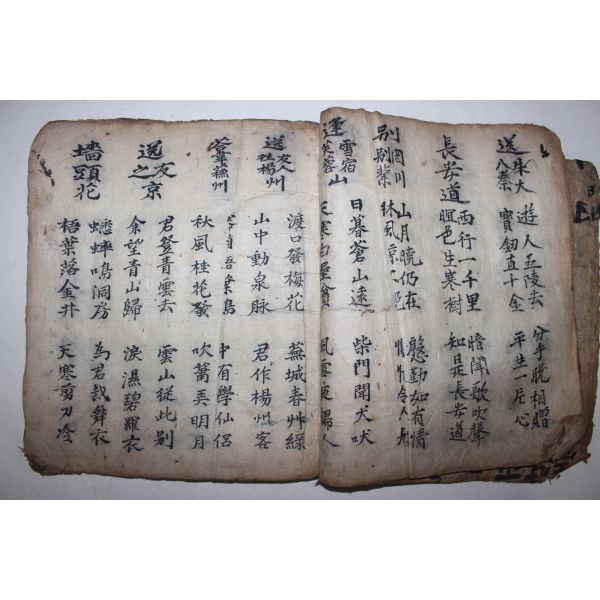 送朱大
入秦
遊人五陵去 分手晩相贈
寶釰直十金 平生一片心
長安道
西行一千里 暗聞歌吹聲
暝色生寒樹 知是長安道
別輞川
別業
山月曉仍在 慇勤如有情
林風凉 絶 令人別
逢雪宿
芙蓉山
日暮蒼山遠 柴門聞犬吠
天寒白屋貧 風雪夜歸人
送友人
往楊州
渡口發梅花 蕪城春艸綠
山中動泉脉 君作楊州客
答韋蘇州
葉鳥 中有學仙侶
秋風桂花發 吹簫弄明月
送友
之京
君登青雲去 雲山從此別
余望青山歸 淚濕碧羅衣
墻頭花
蟋蟀鳴洞房 為君裁舞衣
梧葉落金井 天寒剪刀冷